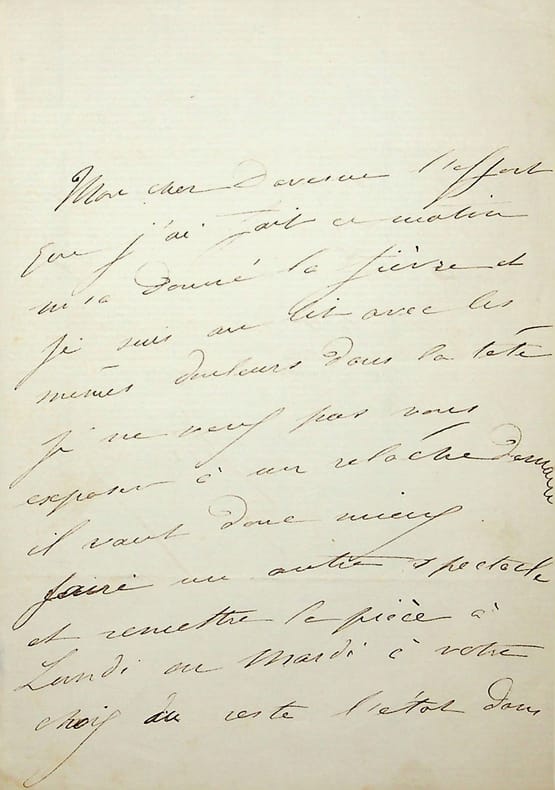 Mon cher Davesne l'effort
que j'ai fait ce matin
m'a donné la fièvre et
je suis au lit avec les
mêmes douleurs dans la tête
je ne veux pas vous
exposer à un relâche demain
il vaut donc mieux
faire un autre spectacle
et remettre la pièce à
Lundi ou Mardi à votre
choix du reste l'état dans